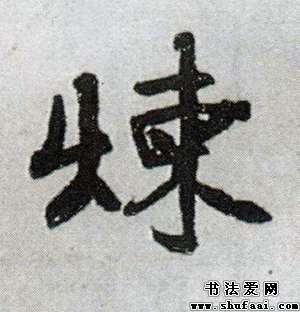 煉
书法爱网
www.shufaai.com